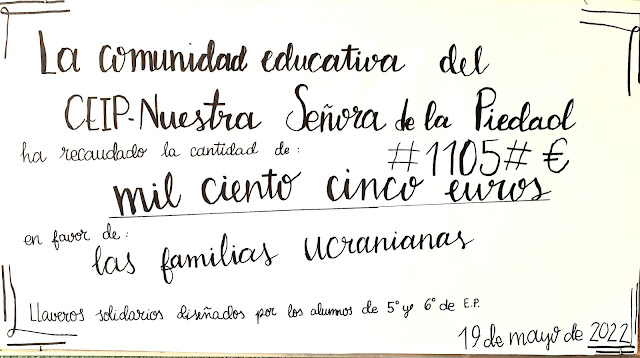 La comunidad educativa del
CEIP-Nuestra Señora de la Piedad
ha recaudado la cantidad de: #1105# €
mil ciento cinco euros
en favor de:
las familias ucranianas
Llaveros solidarios diseñados por los alumnos de 5º y 6º de E.P.
19 de mayo de 2022